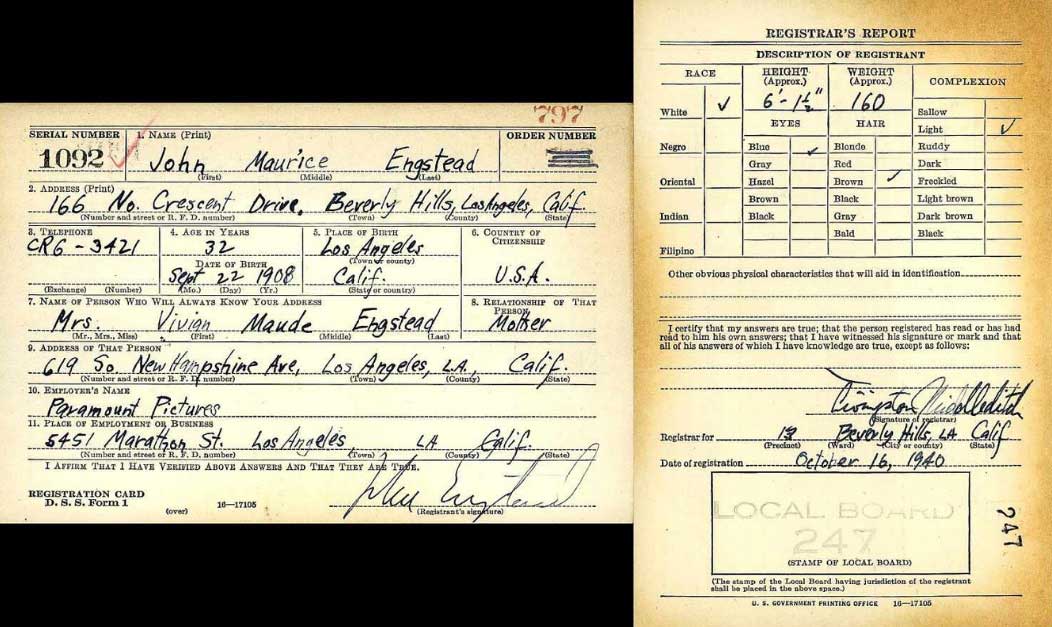 797
SERIAL NUMBER 1. NAME (Print) ORDER NUMBER
1092 John Maurice Engstead
(First) (Middle) (Last)
2. ADDRESS (Print)
166 No. Crescent Drive, Beverly Hills, Los Angeles, Calif.
(Number and street or R. F. D. number) (Town) (County) (State)
3. TELEPHONE 4. AGE IN YEARS 5. PLACE OF BIRTH 6. COUNTRY OF CITIZENSHIP
CR6 - 3421 32 Los Angeles
DATE OF BIRTH (Town or county)
Sept 22 1908 Calif. U.S.A.
(Exchange) (Number) (Mo.) (Day) (Yr.) (State or country)
7. NAME OF PERSON WHO WILL ALWAYS KNOW YOUR ADDRESS 8. RELATIONSHIP OF THAT PERSON
Mrs. Vivian Maude Engstead Mother
(Mr., Mrs., Miss) (First) (Middle) (Last)
9. ADDRESS OF THAT PERSON
619 So. New Hampshire Ave, Los Angeles, L.A., Calif.
(Number and street or R. F. D. number) (Town) (County) (State)
10. EMPLOYER'S NAME
Paramount Pictures
11. PLACE OF EMPLOYMENT OR BUSINESS
5451 Marathon St. Los Angeles LA Calif.
(Number and street or R. F. D. number) (Town) (County) (State)
I AFFIRM THAT I HAVE VERIFIED ABOVE ANSWERS AND THAT THEY ARE TRUE.
REGISTRATION CARD John Engstead
D. S. S. Form 1 16—17105 (over) (Registrant's signature)
REGISTRAR'S REPORT
DESCRIPTION OF REGISTRANT
RACE HEIGHT (Approx.) WEIGHT (Approx.) COMPLEXION
White ✓ 6'-1½" 160 Sallow
EYES HAIR Light ✓
Negro Blue ✓ Blonde Ruddy
Gray Red Dark
Oriental Hazel Brown ✓ Freckled
Brown Black Light brown
Indian Black Gray Dark brown
Bald Black
Filipino
Other obvious physical characteristics that will aid in identification
I certify that my answers are true; that the person registered has read or has had
read to him his own answers; that I have witnessed his signature or mark and that
all of his answers of which I have knowledge are true, except as follows:
Livingston Middleditch
(Signature of registrar)
Registrar for 13 Beverly Hills, LA Calif
(Precinct) (Ward) (City or county) (State)
Date of registration October 16, 1940
LOCAL BOARD
247
(STAMP OF LOCAL BOARD)
247
(The stamp of the Local Board having jurisdiction of the registrant
shall be placed in the above space.)
U. S. GOVERNMENT PRINTING OFFICE 16—17105